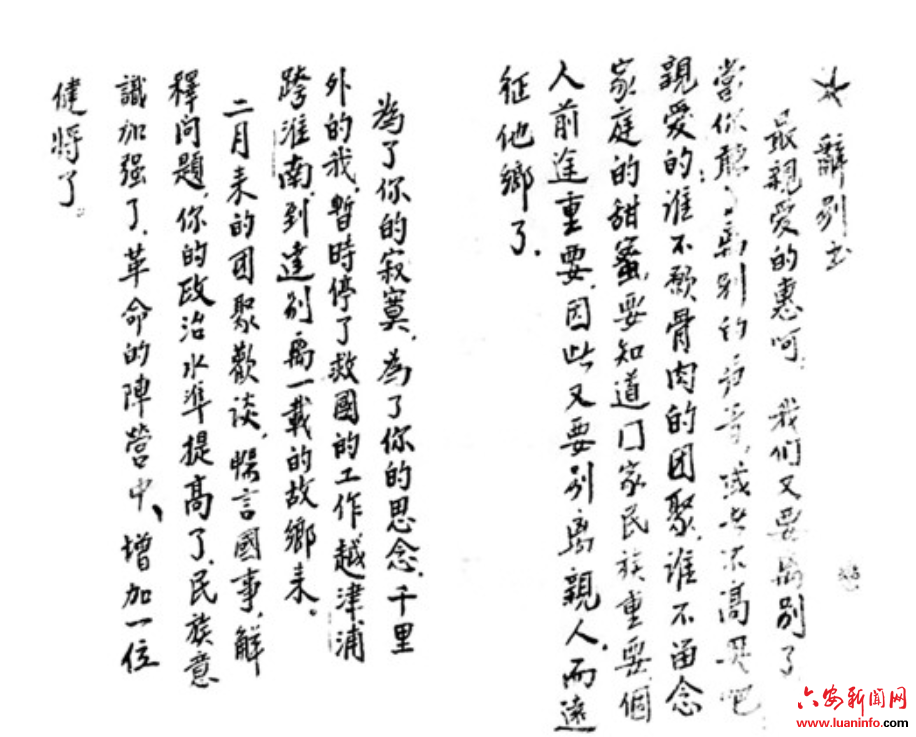 辭别书
最親爱的惠呵，我们又要离别了
當你聽了离别的声音，或者不高兴吧
親爱的：谁不願骨肉的团聚，谁不留念
家庭的甜蜜，要知道囗家民族重要，個
人前途重要，因此又要别离親人，而遠
征他鄉了．
為了你的寂寞，為了你的思念，千里
外的我，暫時停了救國的工作越津浦
跨淮南，到達别离一载的故鄉来．
二月来的团聚歡谈，暢言國事，解
释问題，你的政治水準提高了，民族意
識加强了．革命的陣營中、增加一位
健将了。
六安新闻网
www.luaninfo.com